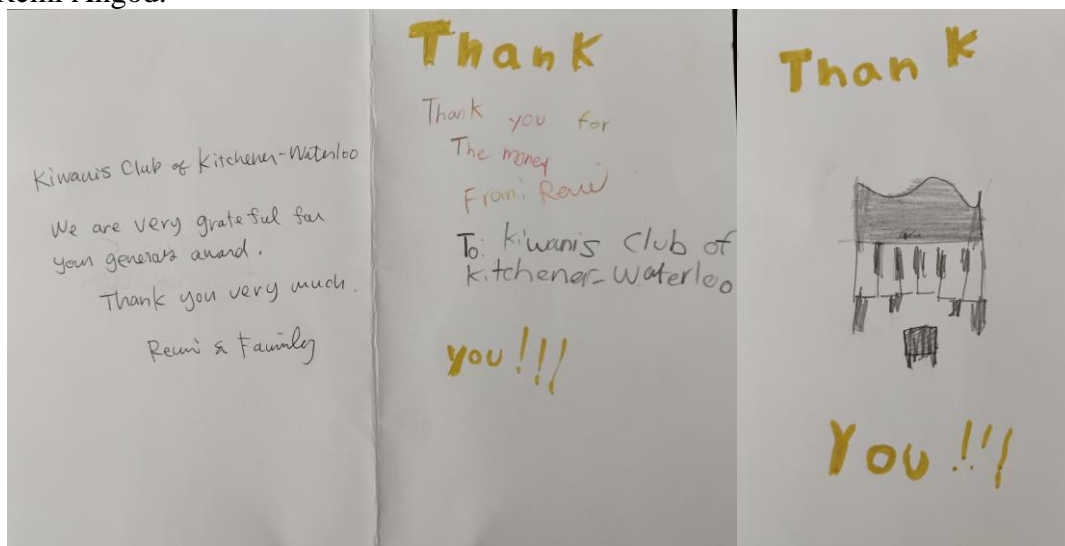 Remi Angod.
Kiwanis Club of Kitchener-Waterloo
We are very grateful for
your generous award.
Thank you very much.
Remi & Family
Thank
Thank you for
The money
From: Remi
To: Kiwanis Club of
Kitchener-Waterloo
you!!!
Thank
You!!!